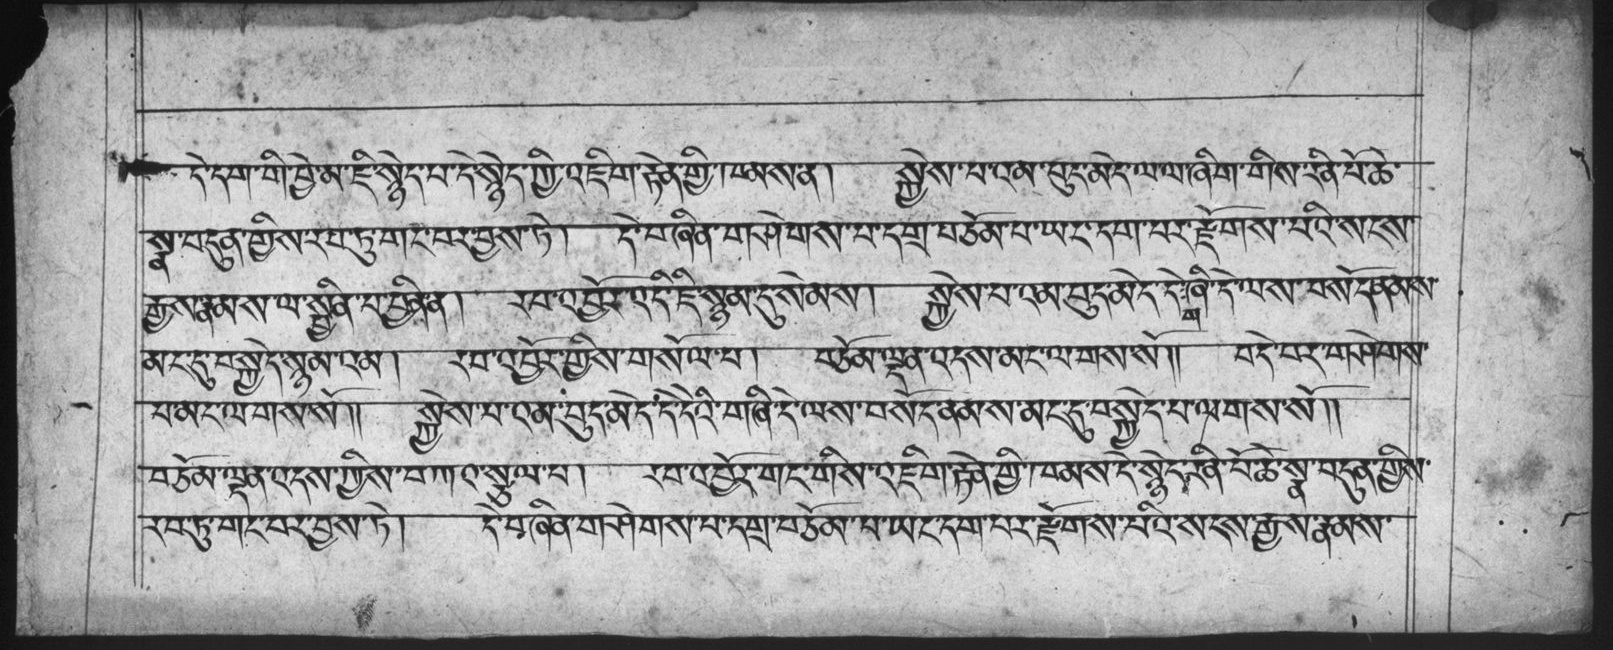 དེ་དག་གི་བྱེ་མ་ཇི་སྙེད་པ་དེ་སྙེད་ཀྱི་འཇིག་རྟེན་གྱི་ཁམས་ན། སྐྱེས་པ་འམ་བུད་མེད་ལ་ལ་ཞིག་གིས་རིན་པོ་ཆེ་
སྣ་བདུན་གྱིས་རབ་ཏུ་གང་བར་བྱས་ཏེ། དེ་བཞིན་གཤེགས་པ་དགྲ་བཅོམ་པ་ཡང་དག་པར་རྫོགས་པའི་སངས་
རྒྱས་རྣམས་ལ་སྦྱིན་པ་བྱིན་ན། རབ་འབྱོར་འདི་ཇི་སྙམ་དུ་སེམས། སྐྱེས་པ་འམ་བུད་མེད་དེ་གཞི་དེ་ལས་བསོད་ནམས་
མང་དུ་བསྐྱེད་སྙམ་འམ། རབ་འབྱོར་གྱིས་གསོལ་པ། བཅོམ་ལྡན་འདས་མང་ལགས་སོ།། བདེ་བར་གཤེགས་
པ་མང་ལགས་སོ།། སྐྱེས་པ་འམ་བུད་མེད་དེ་དེའི་གཞི་དེ་ལས་བསོད་ནམས་མང་དུ་བསྐྱེད་པ་ལགས་སོ།།
བཅོམ་ལྡན་འདས་ཀྱིས་བཀའ་སྩལ་པ། རབ་འབྱོར་གང་གིས་འཇིག་རྟེན་གྱི་ཁམས་དེ་སྙེད་རིན་པོ་ཆེ་སྣ་བདུན་གྱིས་
རབ་ཏུ་གང་བར་བྱས་ཏེ། དེ་བཞིན་གཤེགས་པ་དགྲ་བཅོམ་པ་ཡང་དག་པར་རྫོགས་པའི་སངས་རྒྱས་རྣམས་